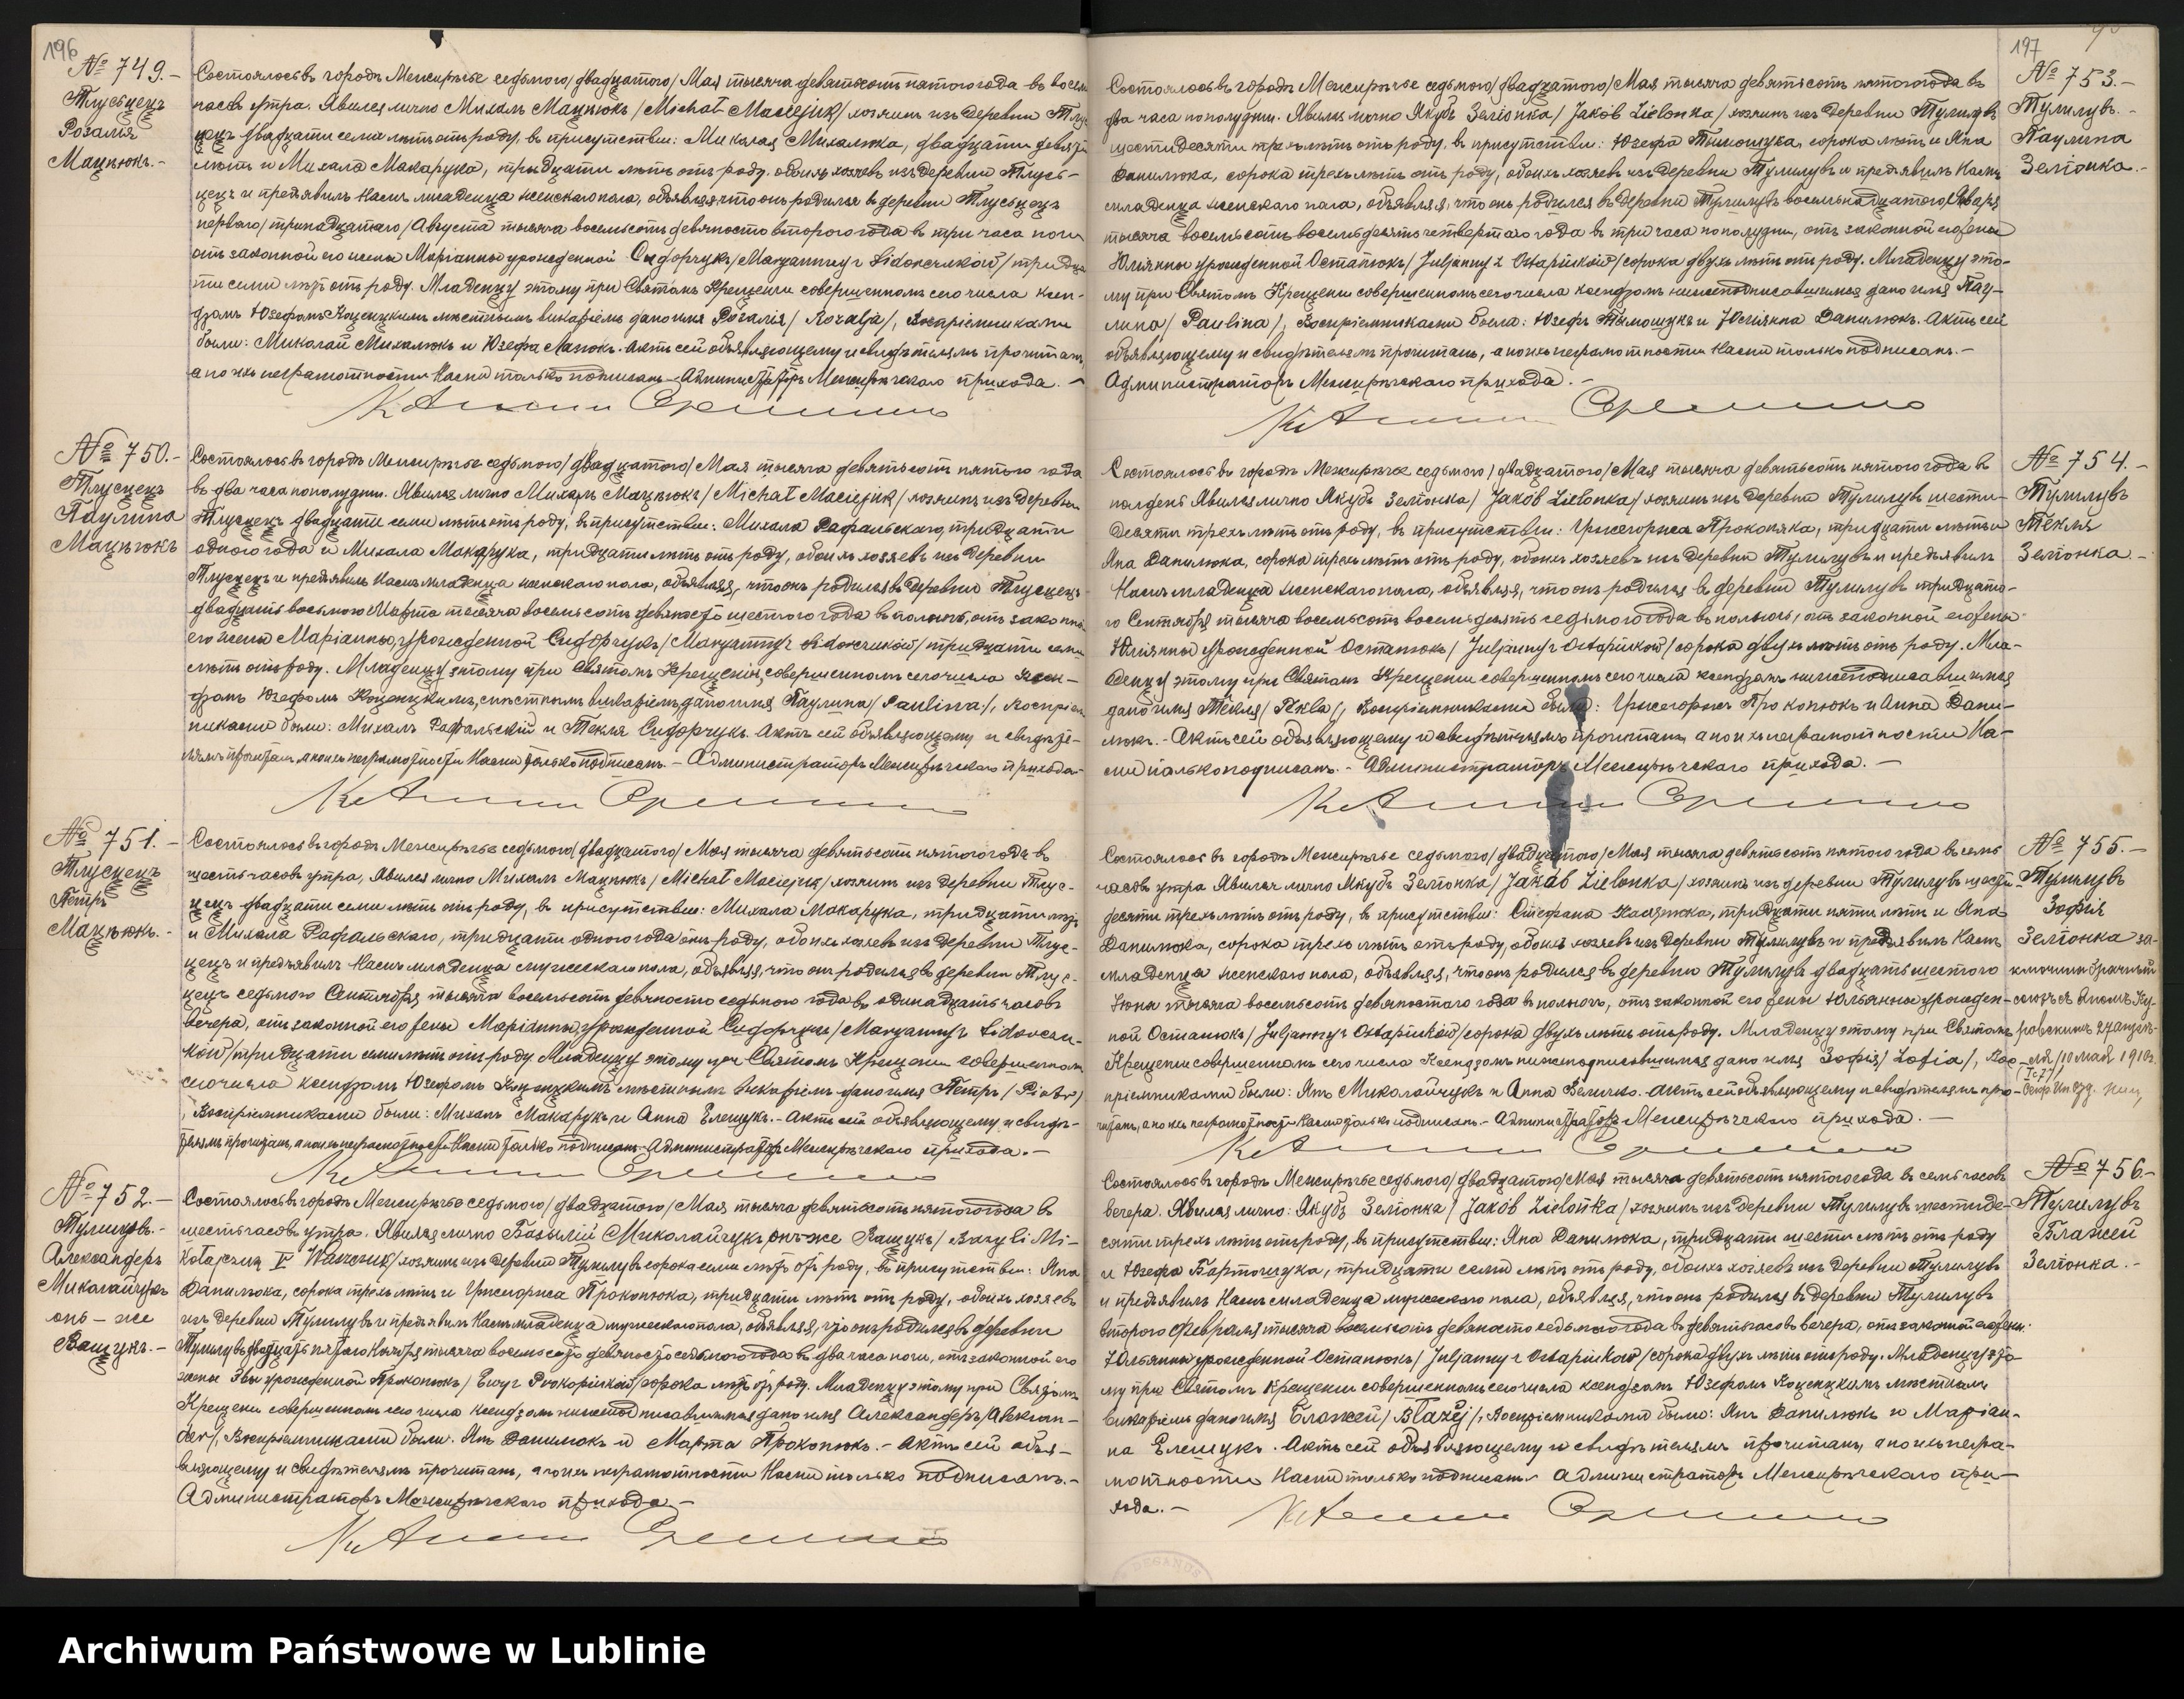 196
№ 749.-
Тлусьцець
Розалія
Мацѣюкъ.-
Состоялось въ городѣ Межирѣчье седьмого/двадцатого/Мая тысяча девятьсотъ пятого года въ восемь
часовъ утра. Явился лично Михалъ Мацѣюкъ/Michał Maciejuk/хозяинъ изъ деревни Тлусь-
цець двадцати семи лѣтъ отъ роду, въ присутствіи: Миколая Михалюка, двадцати девяти
лѣтъ и Михала Макарука, тридцати лѣтъ отъ роду, обоихъ хозяевъ изъ деревни Тлусь-
цець и предъявилъ Намъ младенца женскаго пола, объявляя, что онъ родился въ деревни Тлусьцець
перваго/тринадцатаго/Августа тысяча восемьсотъ девяносто второго года въ три часа ночи
отъ законной его жены Маріанны урожденной Сидорчукъ/Maryanny z Sidorczuków/тридца-
ти семи лѣтъ отъ роду. Младенцу этому при Святомъ Крещеніи совершенномъ сего числа ксен-
дзомъ Юзефомъ Коценцкимъ мѣстнымъ викаріемъ дано имя Розалія/Rozalja/, Воспріемниками
были: Миколай Михалюкъ и Юзефа Мацюкъ. Актъ сей объявляющему и свидѣтелямъ прочитанъ,
а по ихъ неграмотности Нами только подписанъ.- Администраторъ Межирѣчскаго прихода.-
№ 750.-
Тлусцець
Паулина
Мацѣюкъ
Состоялось въ городѣ Межирѣчье седьмого/двадцатого/Мая тысяча девятьсотъ пятого года
въ два часа пополудни. Явился лично Михалъ Мацѣюкъ/Michał Maciejuk/хозяинъ изъ деревни
Тлусцець двадцати семи лѣтъ отъ роду, въ присутствіи: Михала Рафальскаго, тридцати
одного года и Михала Макарука, тридцати лѣтъ отъ роду, обоихъ хозяевъ изъ деревни
Тлусцець и предъявилъ Намъ младенца женскаго пола, объявляя, что онъ родился въ деревни Тлусцець
двадцать восьмого Марта тысяча восемьсотъ девяносто шестого года въ полночь, отъ законной
его жены Маріанны, урожденной Сидорчукъ/Maryanny z Sidorczuków/тридцати семи
лѣтъ отъ роду. Младенцу этому при Святомъ Крещеніи, совершенномъ сего числа ксен-
дзомъ Юзефомъ Коценцкимъ, мѣстнымъ викаріемъ, дано имя Паулина/Paulina/, Воспріем-
никами были: Михалъ Рафальскій и Текля Сидорчукъ. Актъ сей объявляющему и свидѣте-
лямъ прочитанъ, а по ихъ неграмотности Нами только подписанъ.- Администраторъ Межирѣчскаго прихода.-
№ 751.-
Тлусцець
Петръ
Мацѣюкъ.-
Состоялось въ городѣ Межирѣчье седьмого/двадцатого/Мая тысяча девятьсотъ пятого года въ
шесть часовъ утра, Явился лично Михалъ Мацѣюкъ/Michał Maciejuk/хозяинъ изъ деревни Тлус-
цець двадцати семи лѣтъ отъ роду, въ присутствіи: Михала Макарука, тридцати лѣтъ
и Михала Рафальскаго, тридцати одного года отъ роду, обоихъ хозяевъ изъ деревни Тлус-
цець и предъявилъ Намъ младенца мужескаго пола, объявляя, что онъ родился въ деревни Тлус-
цець седьмого Сентября тысяча восемьсотъ девяносто седьмого года въ одинадцать часовъ
вечера, отъ законной его жены Маріанны, урожденной Сидорчукъ/Maryanny z Sidorczu-
ków/тридцати семи лѣтъ отъ роду Младенцу этому при Святомъ Крещеніи совершенномъ
сего числа ксендзомъ Юзефомъ Коценцкимъ мѣстнымъ викаріемъ дано имя Петръ/Piotr/
, Воспріемниками были: Михалъ Макарукъ и Анна Елещукъ.- Актъ сей объявляющему и свидѣ-
телямъ прочитанъ, а по ихъ неграмотности Нами только подписанъ.- Администраторъ Межирѣчскаго прихода.-
№ 752.-
Тулиловъ.-
Александеръ
Миколайчукъ
онъ-же
Ващукъ.-
Состоялось въ городѣ Межирѣчье седьмого/двадцатого/Мая тысяча девятьсотъ пятого года въ
шесть часовъ утра. Явился лично Базылій Миколайчукъ онъ-же Ващукъ/Bazyli Mi-
kołajczuk v Waszczuk/хозяинъ изъ деревни Тулилувъ сорока семи лѣтъ отъ роду, въ присутствіи: Яна
Данилюка, сорока трехъ лѣтъ и Григориса Прокопюка, тридцати лѣтъ отъ роду, обоихъ хозяевъ
изъ деревни Тулилувъ и предъявилъ Намъ младенца мужескаго пола, объявляя, что онъ родился въ деревни
Тулилувъ двадцать пятого Ноября тысяча восемьсотъ девяносто седьмого года въ два часа ночи, отъ законной его
жены Эвы урожденной Прокопюкъ/Ewy z Prokopiuków/сорока лѣтъ отъ роду. Младенцу этому при Святомъ
Крещеніи совершенномъ сего числа ксендзомъ нижеподписавшимся дано имя Александеръ/Aleksan-
der/, Воспріемниками были: Янъ Данилюкъ и Марта Прокопюкъ.- Актъ сей объя-
вляющему и свидѣтелямъ прочитанъ, а по ихъ неграмотности Нами только подписанъ.-
Администраторъ Межирѣчскаго прихода.-
197
№ 753.-
Тулилувъ.-
Паулина
Зеліонка.-
Состоялось въ городѣ Межирѣчье седьмого/двадцатого/Мая тысяча девятьсотъ пятого года въ
два часа пополудни. Явился лично Якубъ Зеліонка/Jakób Zielonka/хозяинъ изъ деревни Тулилувъ
шестидесяти трехъ лѣтъ отъ роду, въ присутствіи: Юзефа Тымощука, сорока лѣтъ и Яна
Данилюка, сорока трехъ лѣтъ отъ роду, обоихъ хозяевъ изъ деревни Тулилувъ и предъявилъ Намъ
младенца женскаго пола, объявляя, что онъ родился въ деревни Тулилувъ восемьнадцатого Января
тысяча восемьсотъ восемьдесятъ четвертаго года въ три часа пополудни, отъ законной его жены
Юліянны урожденной Остапюкъ/Juljanny z Ostapiuków/сорока двухъ лѣтъ отъ роду. Младенцу это-
му при Святомъ Крещеніи совершенномъ сего числа ксендзомъ нижеподписавшимся дано имя Пау-
лина/Paulina/, Воспріемниками были: Юзефъ Тымощукъ и Юліянна Данилюкъ. Актъ сей
объявляющему и свидѣтелямъ прочитанъ, а по ихъ неграмотности Нами только подписанъ.-
Администраторъ Межирѣчскаго прихода.-
№ 754.-
Тулилувъ
Текля
Зеліонка.-
Состоялось въ городѣ Межирѣчье седьмого/двадцатого/Мая тысяча девятьсотъ пятого года въ
полдень Явился лично Якубъ Зеліонка/Jakób Zielonka/хозяинъ изъ деревни Тулилувъ шести-
десяти трехъ лѣтъ отъ роду, въ присутствіи: Григориса Прокопюка, тридцати лѣтъ и
Яна Данилюка, сорока трехъ лѣтъ отъ роду, обоихъ хозяевъ изъ деревни Тулилувъ и предъявилъ
Намъ младенца женскаго пола, объявляя, что онъ родился въ деревни Тулилувъ тридцата-
го Сентября тысяча восемьсотъ восемьдесятъ седьмого года въ полночь, отъ законной его жены
Юліянны урожденной Остапюкъ/Juljanny z Ostapiuków/сорока двухъ лѣтъ отъ роду. Мла-
денцу этому при Святомъ Крещеніи совершенномъ сего числа ксендзомъ нижеподписавшимся
дано имя Текля/Tekla/, Воспріемниками были: Григорисъ Прокопюкъ и Анна Дани-
люкъ.- Актъ сей объявляющему и свидѣтелямъ прочитанъ, а по ихъ неграмотности На-
ми только подписанъ.- Администраторъ Межирѣчскаго прихода.-
№ 755.-
Тулилувъ
Зофія
Зеліонка за-
ключила брачный
союзъ съ
Состоялось въ городѣ Межирѣчье седьмого/двадцатого/Мая тысяча девятьсотъ пятого года въ семь
часовъ утра Явился лично Якубъ Зеліонка/Jakób Zielonka/хозяинъ изъ деревни Тулилувъ шести-
десяти трехъ лѣтъ отъ роду, въ присутствіи: Стефана, тридцати пяти лѣтъ и Яна
Данилюка, сорока трехъ лѣтъ отъ роду, обоихъ хозяевъ изъ деревни Тулилувъ и предъявилъ Намъ
младенца женскаго пола, объявляя, что онъ родился въ деревни Тулилувъ двадцать шестого
Іюня тысяча восемьсотъ девяностаго года въ полночь, отъ законной его жены Юльянны урожден-
ной Остапюкъ/Juljanny z Ostapiuków/сорока двухъ лѣтъ отъ роду. Младенцу этому при Святомъ
Крещеніи совершенномъ сего числа Ксендзомъ нижеподписавшимся дано имя Зофія/Zofia/, Вос-
пріемниками были: Янъ Миколайчукъ и Анна Величко. Актъ сей объявляющему и свидѣтелямъ про-
читанъ, а по ихъ неграмотности Нами только подписанъ.- Администраторъ Межирѣчскаго прихода.-
№ 756-
Тулилувъ
Блажей
Зеліонка.-
Состоялось въ городѣ Межирѣчье седьмого/двадцатого/Мая тысяча девятьсотъ пятого года въ семь часовъ
вечера. Явился лично: Якубъ Зеліонка/Jakób Zielonka/хозяинъ изъ деревни Тулилувъ шестиде-
сяти трехъ лѣтъ отъ роду, въ присутствіи: Яна Данилюка, тридцати шести лѣтъ отъ роду
и Юзефа Бартошука, тридцати семи лѣтъ отъ роду, обоихъ хозяевъ изъ деревни Тулилувъ
и предъявилъ Намъ младенца мужескаго пола, объявляя, что онъ родился въ деревни Тулилувъ
второго Февраля тысяча восемьсотъ девяносто седьмого года въ девять часовъ вечера, отъ законной его жены
Юльянны урожденной Остапюкъ/Juljanny z Ostapiuków/сорока двухъ лѣтъ отъ роду. Младенцу это-
му при Святомъ Крещеніи совершенномъ сего числа ксендзомъ Юзефомъ Коценцкимъ мѣстнымъ
викаріемъ дано имя Блажей/Błażej/, Воспріемниками были: Янъ Данилюкъ и Маріан-
на Елещукъ. Актъ сей объявляющему и свидѣтелямъ прочитанъ, а по ихъ негра-
мотности Нами только подписанъ.- Администраторъ Межирѣчскаго при-
хода.-
Archiwum Państwowe w Lublinie